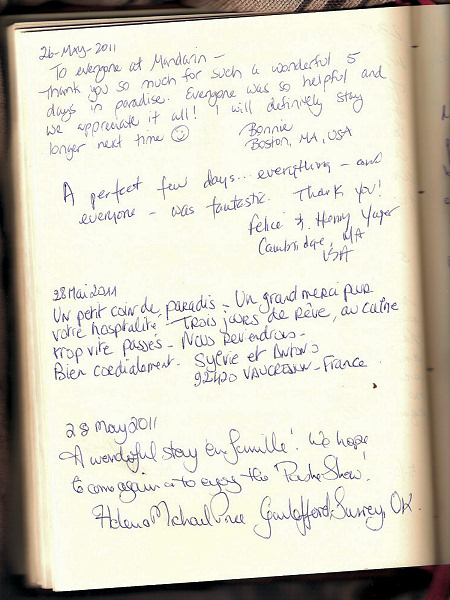 26-May-2011
To everyone at Mandarin -
Thank you so much for such a wonderful 5
days in paradise. Everyone was so helpful and
we appreciate it all! I will definitely stay
longer next time
Bonnie
Boston, MA, USA
A perfect few days... everything - and
everyone - was fantastic. Thank you!
Felice & Henry
Cambridge, MA
USA
28 Mai 2011
Un petit coin de paradis - Un grand merci pour
votre hospitalité. Trois jours de rêve, au calme
trop vite passés - Nous reviendrons -
Bien cordialement. Sylvie et
92420 VAUCRESSON - France
28 May 2011
A wonderful stay 'en famille'! We hope
to come again & to enjoy the
Helena Michael
Surrey, UK.